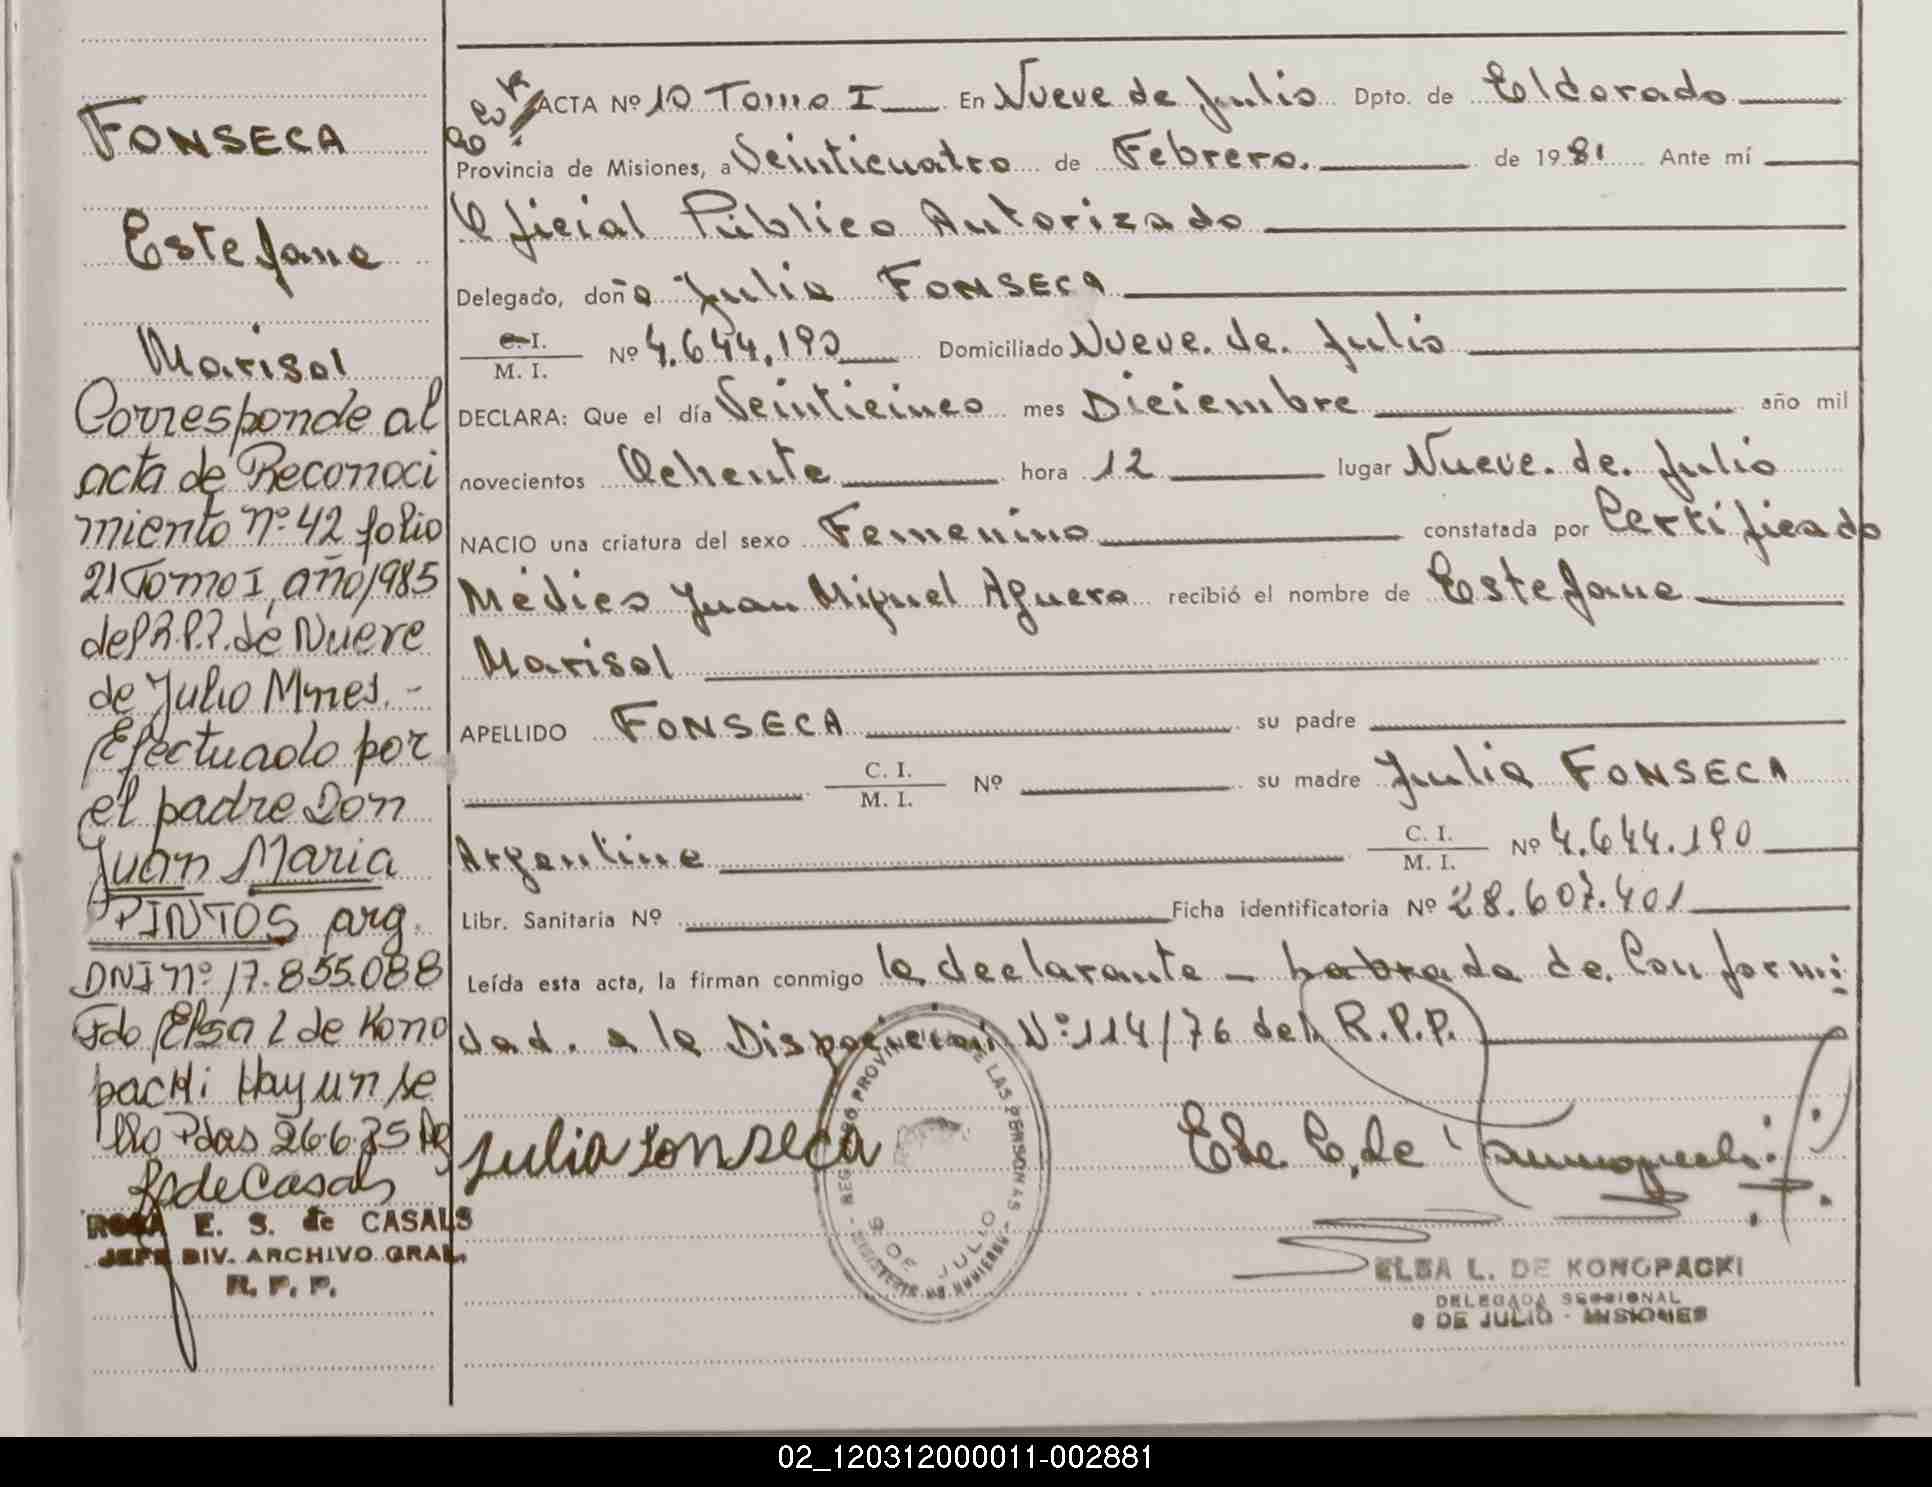 FONSECA
Estefana
Marisol
Corresponde al
acta de Reconoci
miento nº 42 folio
21 Tomo I, año 1985
del R.P.P. de Nueve
de Julio Mnes.-
Efectuado por
el padre Don
Juan Maria
PINTOS arg.
DNI nº 17.855.088
Fdo Elsa L de Kono
packi Hay un se
llo Pdas 26.6.85
RdeCasals
ROSA E. S. de CASALS
JEFE DIV. ARCHIVO GRAL.
R. P. P.
ACTA Nº 10 Tomo I En Nueve de Julio Dpto. de Eldorado
Provincia de Misiones, a Veinticuatro de Febrero. de 1981 Ante mí
Oficial Público Autorizado
Delegado, doña Julia FONSECA
C. I.
M. I. Nº 4.644.190 Domiciliado Nueve. de. Julio
DECLARA: Que el día Veinticinco mes Diciembre año mil
novecientos Ochenta hora 12 lugar Nueve. de. Julio
NACIO una criatura del sexo Femenino constatada por Certificado
Médico Juan Miguel Aguero recibió el nombre de Estefana
Marisol
APELLIDO FONSECA su padre
C. I.
M. I. Nº su madre Julia FONSECA
Argentina C. I.
M. I. Nº 4.644.190
Libr. Sanitaria Nº Ficha identificatoria Nº 28.607.401
Leída esta acta, la firman conmigo la declarante - Labrada de. Conformi
dad. a la Disposición Nº 114/76 del R.P.P.
Julia Fonseca
REGISTRO PROVINCIAL DE LAS PERSONAS
MINISTERIO DE GOBIERNO
9 DE JULIO
ELSA L. DE KONOPACKI
DELEGADA SECCIONAL
9 DE JULIO - MISIONES
02_120312000011-002881